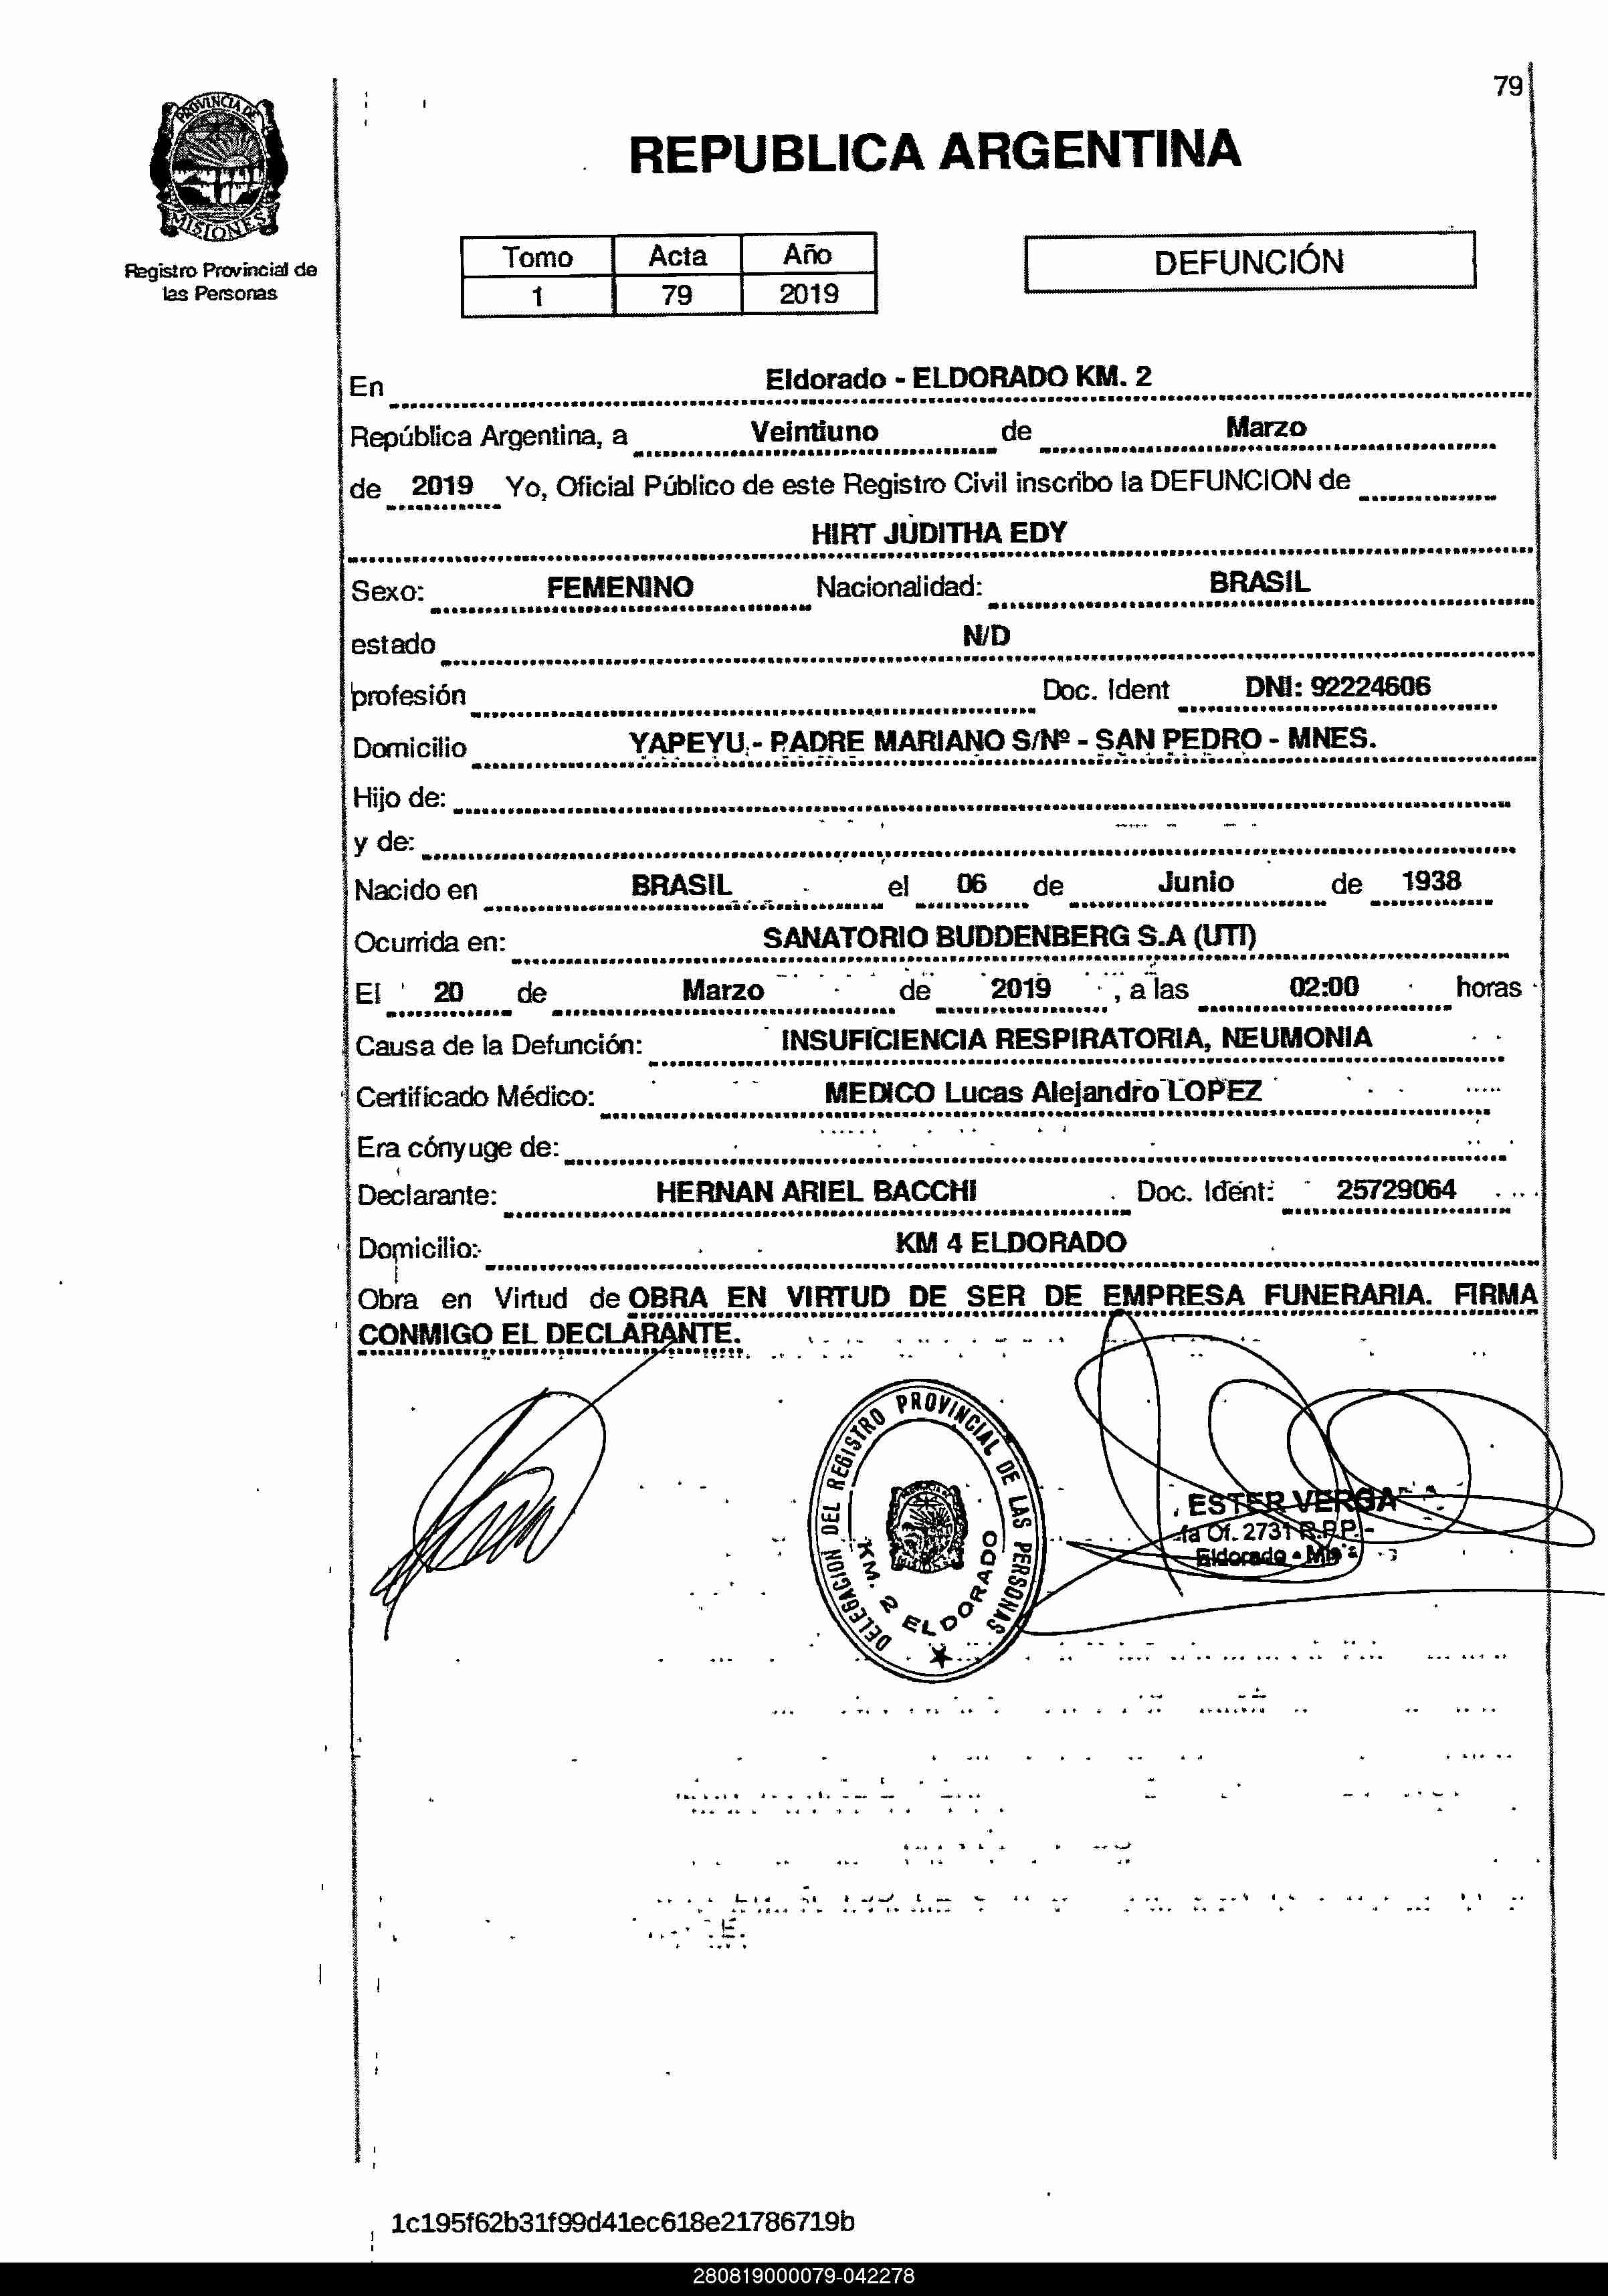 79
PROVINCIA DE
MISIONES
Registro Provincial de
las Personas
REPUBLICA ARGENTINA
Tomo Acta Año
1 79 2019
DEFUNCIÓN
En Eldorado - ELDORADO KM. 2
República Argentina, a Veintiuno de Marzo
de 2019 Yo, Oficial Público de este Registro Civil inscribo la DEFUNCION de
HIRT JUDITHA EDY
Sexo: FEMENINO Nacionalidad: BRASIL
estado N/D
profesión Doc. Ident DNI: 92224606
Domicilio YAPEYU.- PADRE MARIANO S/Nº - SAN PEDRO - MNES.
Hijo de:
y de:
Nacido en BRASIL el 06 de Junio de 1938
Ocurrida en: SANATORIO BUDDENBERG S.A (UTI)
El 20 de Marzo de 2019 , a las 02:00 horas
Causa de la Defunción: INSUFICIENCIA RESPIRATORIA, NEUMONIA
Certificado Médico: MEDICO Lucas Alejandro LOPEZ
Era cónyuge de:
Declarante: HERNAN ARIEL BACCHI Doc. Ident: 25729064
Domicilio: KM 4 ELDORADO
Obra en Virtud de OBRA EN VIRTUD DE SER DE EMPRESA FUNERARIA. FIRMA
CONMIGO EL DECLARANTE.
DELEGACION DEL REGISTRO PROVINCIAL DE LAS PERSONAS
KM. 2 ELDORADO
ESTER VERGA
fa Of. 2731 R.P.P.-
Eldorado - Mis
1c195f62b31f99d41ec618e21786719b
280819000079-042278